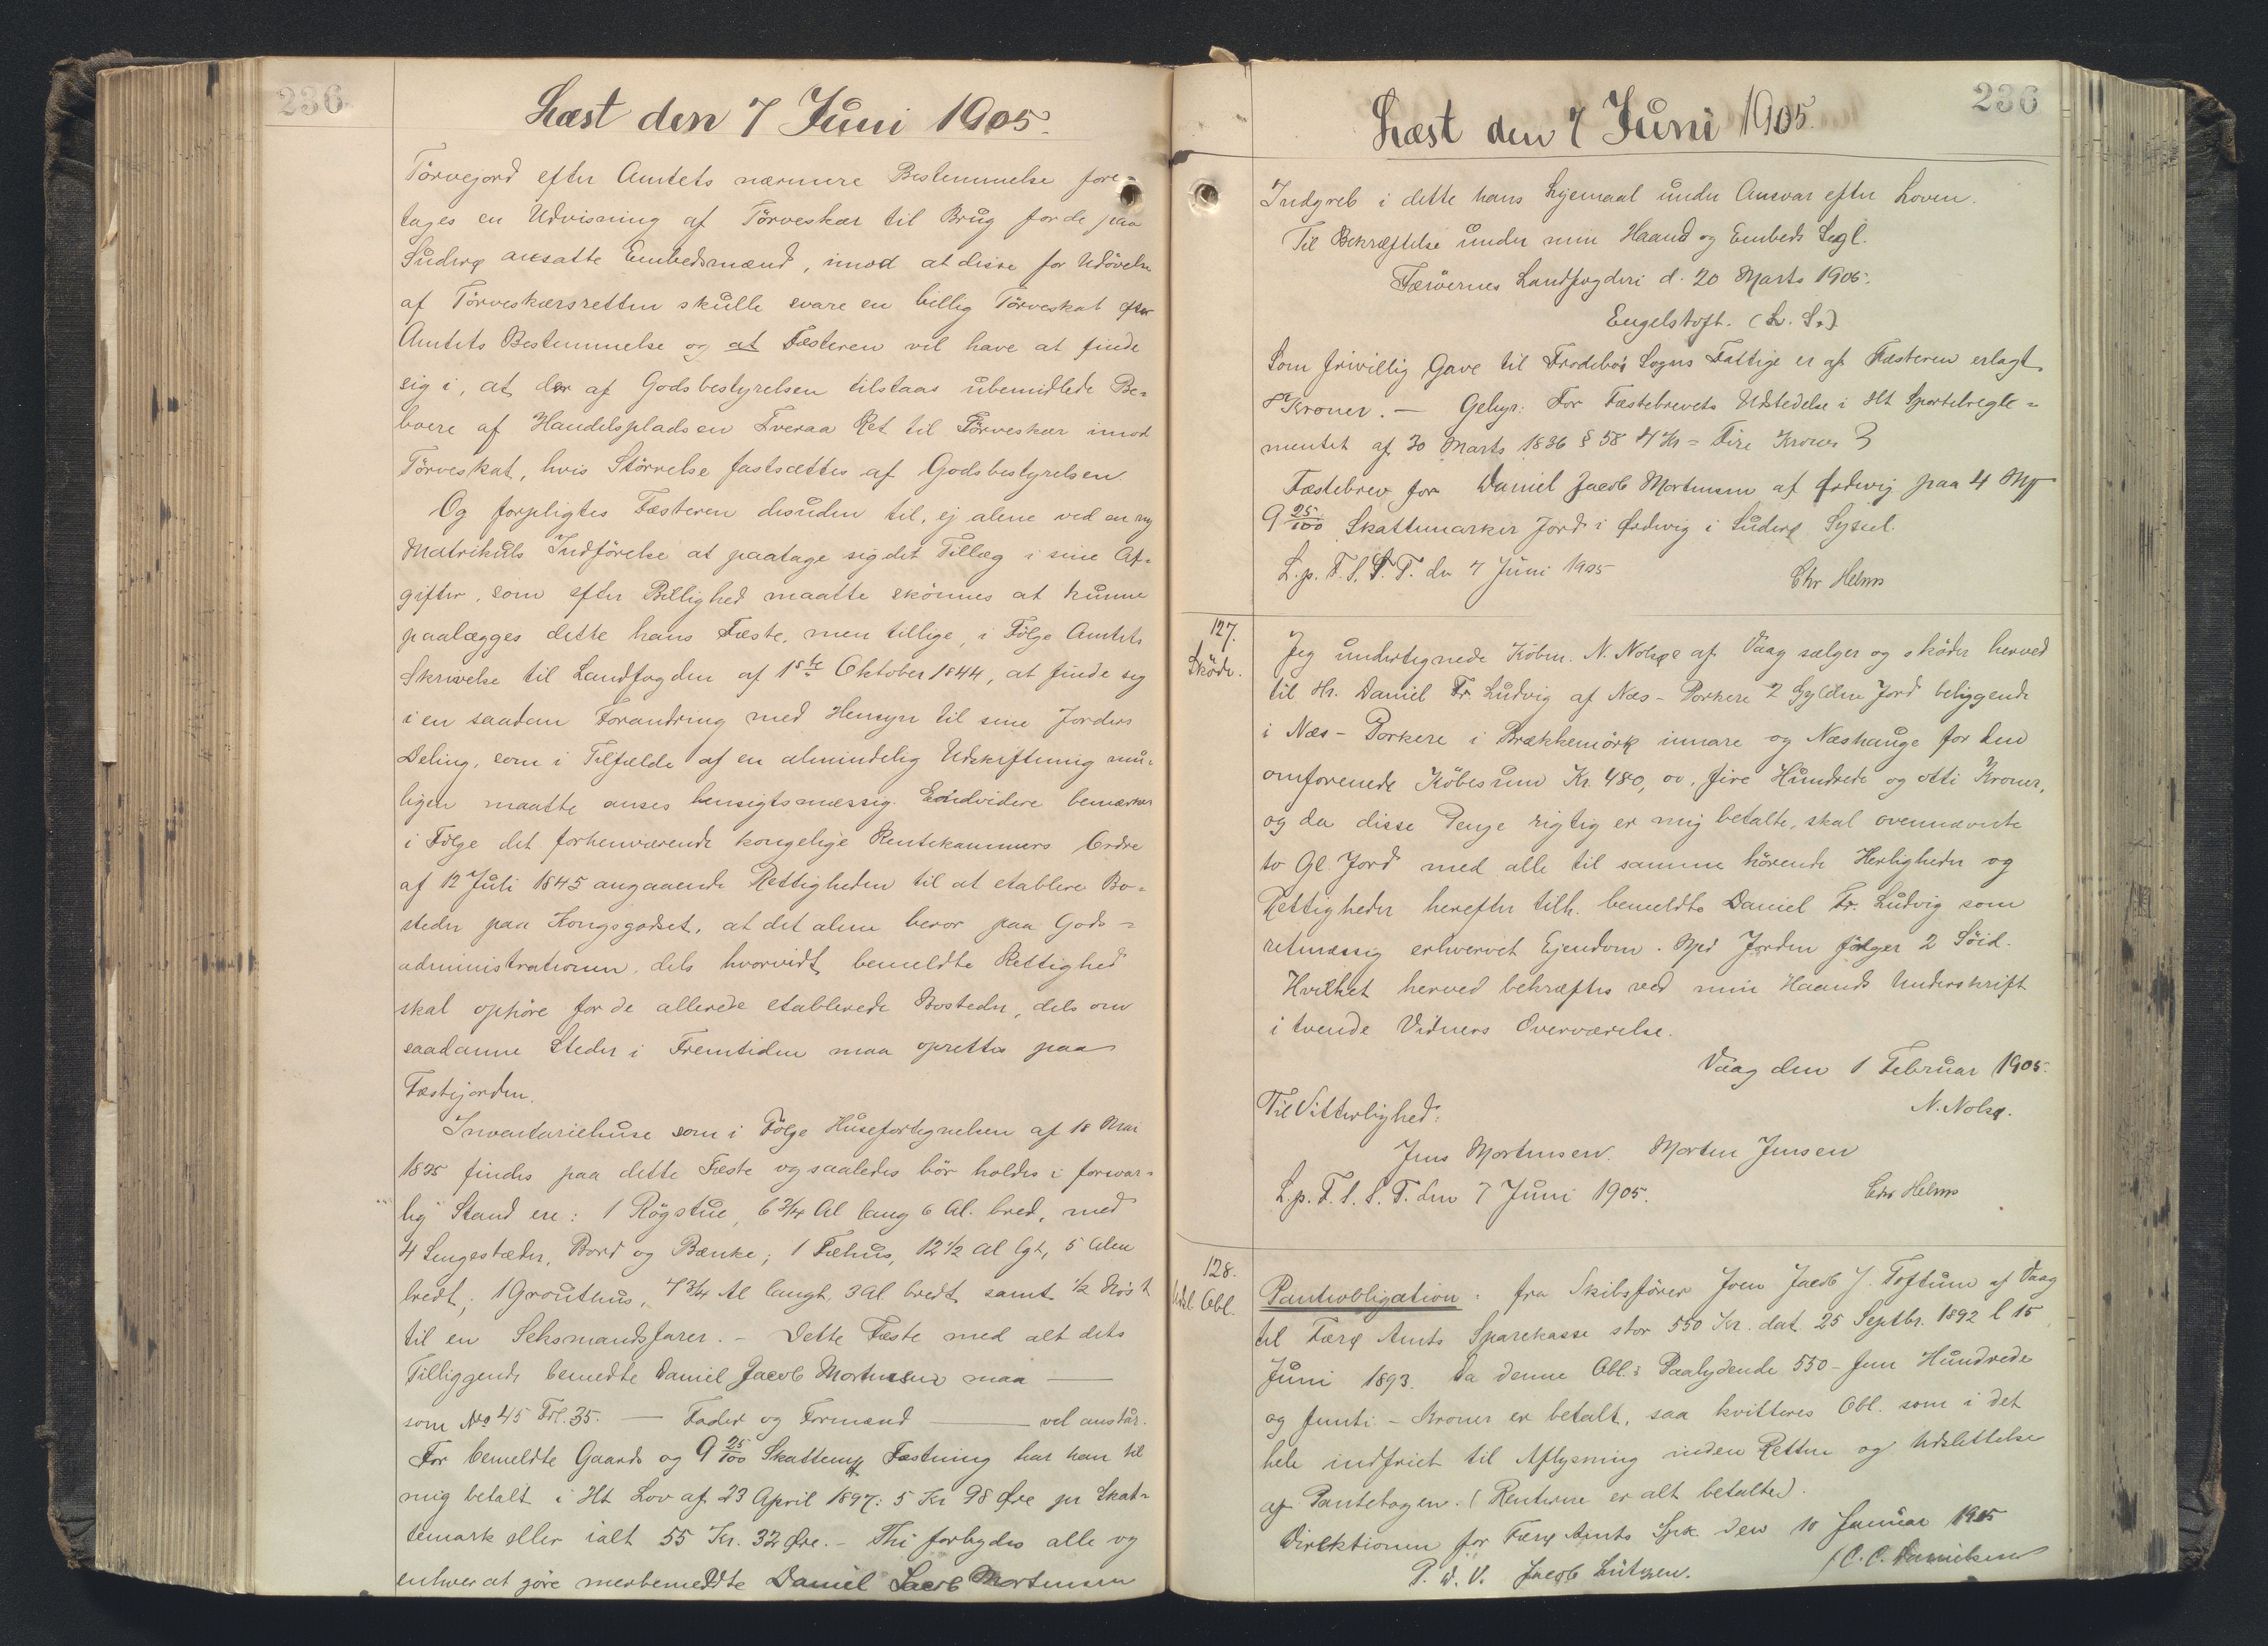 236
Læst den 7 Juni 1905.
Törvejord efter Amtets nærmere Bestemmelse fore-
tages en Udvisning af Törveskær til Brug for de paa
Suderø ansatte Embedsmænd, imod at disse for Udövelse
af Törveskærsretten skulle svare en billig Törveskat efter
Amtets Bestemmelse og at Fæsteren vil have at finde
sig i, at der af Godsbestyrelsen tilstaas ubemidlede Be-
boere af Handelspladsen Tveraa Ret til Törveskær imod
Törveskat, hvis Störrelse fastsættes af Godsbestyrelsen
Og forpligtes Fæsteren desuden til, ej alene ved en ny
Matrikuls Indförelse at paatage sig det Tillæg i sine Af-
gifter, som efter Billighed maatte skönnes at kunne
paalægges dette hans Fæste, men tillige, i Fölge Amtets
Skrivelse til Landfogden af 1ste Oktober 1844, at finde sig
i en saadan Forandring med Hensyn til sine Jorders
Deling, som i Tilfælde af en almindelig Udskiftning mu-
ligen maatte anses hensigtsmæssig. Endvidere bemærkes
i Fölge det forhenværende kongelige Rentekammers Ordre
af 12 Juli 1845 angaaende Rettigheden til at etablere Bo-
steder paa Kongsgodset, at det alene beror paa Gods-
administrationen, dels hvorvidt bemeldte Rettighed
skal ophöre for de allerede etablerede Bosteder, dels om
saadanne Steder i Fremtiden maa oprettes paa
Fæstejorden.
Inventariehuse som i Fölge Husefortegnelsen af 18 Mai
1835 findes paa dette Fæste og saaledes bör holdes i forsvar-
lig Stand ere: 1 Rögstue, 6 3/4 Al lang 6 Al. bred, med
4 Sengestæder, Bord og Bænke; 1 Fæhus, 12 1/2 al lgt, 5 Alen
bredt; 1 Grouthus, 4 3/4 Al langt, 3 Al bredt samt 1/2 Nöst
til en Seksmandsfarer. - Dette Fæste med alt dets
Tilliggende bemeldte Daniel Jacob Mortensen maa —
som No 45 Fol. 35. — Fader og Formand — vel anstår.
For bemeldte Gaards og 9 25/100 Skattemk Fæstning har han til
mig betalt i Ht Lov af 23 April 1897: 5 Kr 98 Øre pr Skat-
temark eller ialt 55 Kr. 32 Øre. - Thi forbydes alle og
enhver at göre merbemeldte Daniel Jacob Mortensen
236
Læst den 7 Juni 1905.
Indgreb i dette hans Lejemaal under Ansvar efter Loven.
Til Bekræftelse under min Haand og Embeds Segl.
Færöernes Landfogderi d. 20 Marts 1905.
Engelstoft. (L. S.)
Som frivillig Gave til Frodebös Sogns Fattige er af Fæsteren erlagt
8 Kroner. — Gebyr: For Fæstebrevets Udstedelse i Ht Sportelregle-
mentet af 30 Marts 1836 § 58 4 Kr = Fire Kroner
Fæstebrev for Daniel Jacob Mortensen af Ørdevig paa 4 Mk
9 25/100 Skattemarker Jord i Ørdevig i Suderø Syssel.
L. p. F. S. S. T. den 7 Juni 1905
Chr Helms
127.
Sköde.
Jeg undertegnede Köbm. N. Nolsøe af Vaag sælger og sköder herved
til Hr. Daniel Fr. Ludvig af Næs-Porkere 2 Gylden Jord beliggende
i Næs-Porkere i Brækkemörk innare og Næshauge for den
omforenede Köbesum Kr. 480, oo, fire Hundrede og otti Kroner,
og da disse Penge rigtig er mig betalte, skal ovennævnte
to Gl. Jord med alle til samme hörende Herligheder og
Rettigheder herefter tilh. bemeldte Daniel Fr. Ludvig som
retmæssig erhvervet Ejendom. Med Jorden fölger 2 Söid.
Hvilket herved bekræftes ved min Haands Underskrift
i tvende Vidners Overværelse.
Vaag den 1 Februar 1905.
N. Nolsø.
Til Vitterlighed:
Jens Mortensen. Morten Jensen
L. p. F. S. S. T. den 7 Juni 1905.
Chr Helms
128.
Udsl. Obl.
Pantobligation: fra Skibsförer Joen Jacob J. Toftum af Vaag
til Færø Amts Sparekasse stor 550 Kr. dat. 25 Septbr. 1892 l 15
Juni 1893. Da denne Obl.s Paalydende 550 - fem Hundrede
og femti - Kroner er betalt, saa kvitteres Obl. som i det
hele indfriet til Aflysning inden Retten og Udslettelse
af Pantebogen. (Renterne er alt betalte).
Direktionen for Færø Amts Spk. den 10 Januar 1905
P. d. V. Jacob Lützen. / C. C. Danielsen